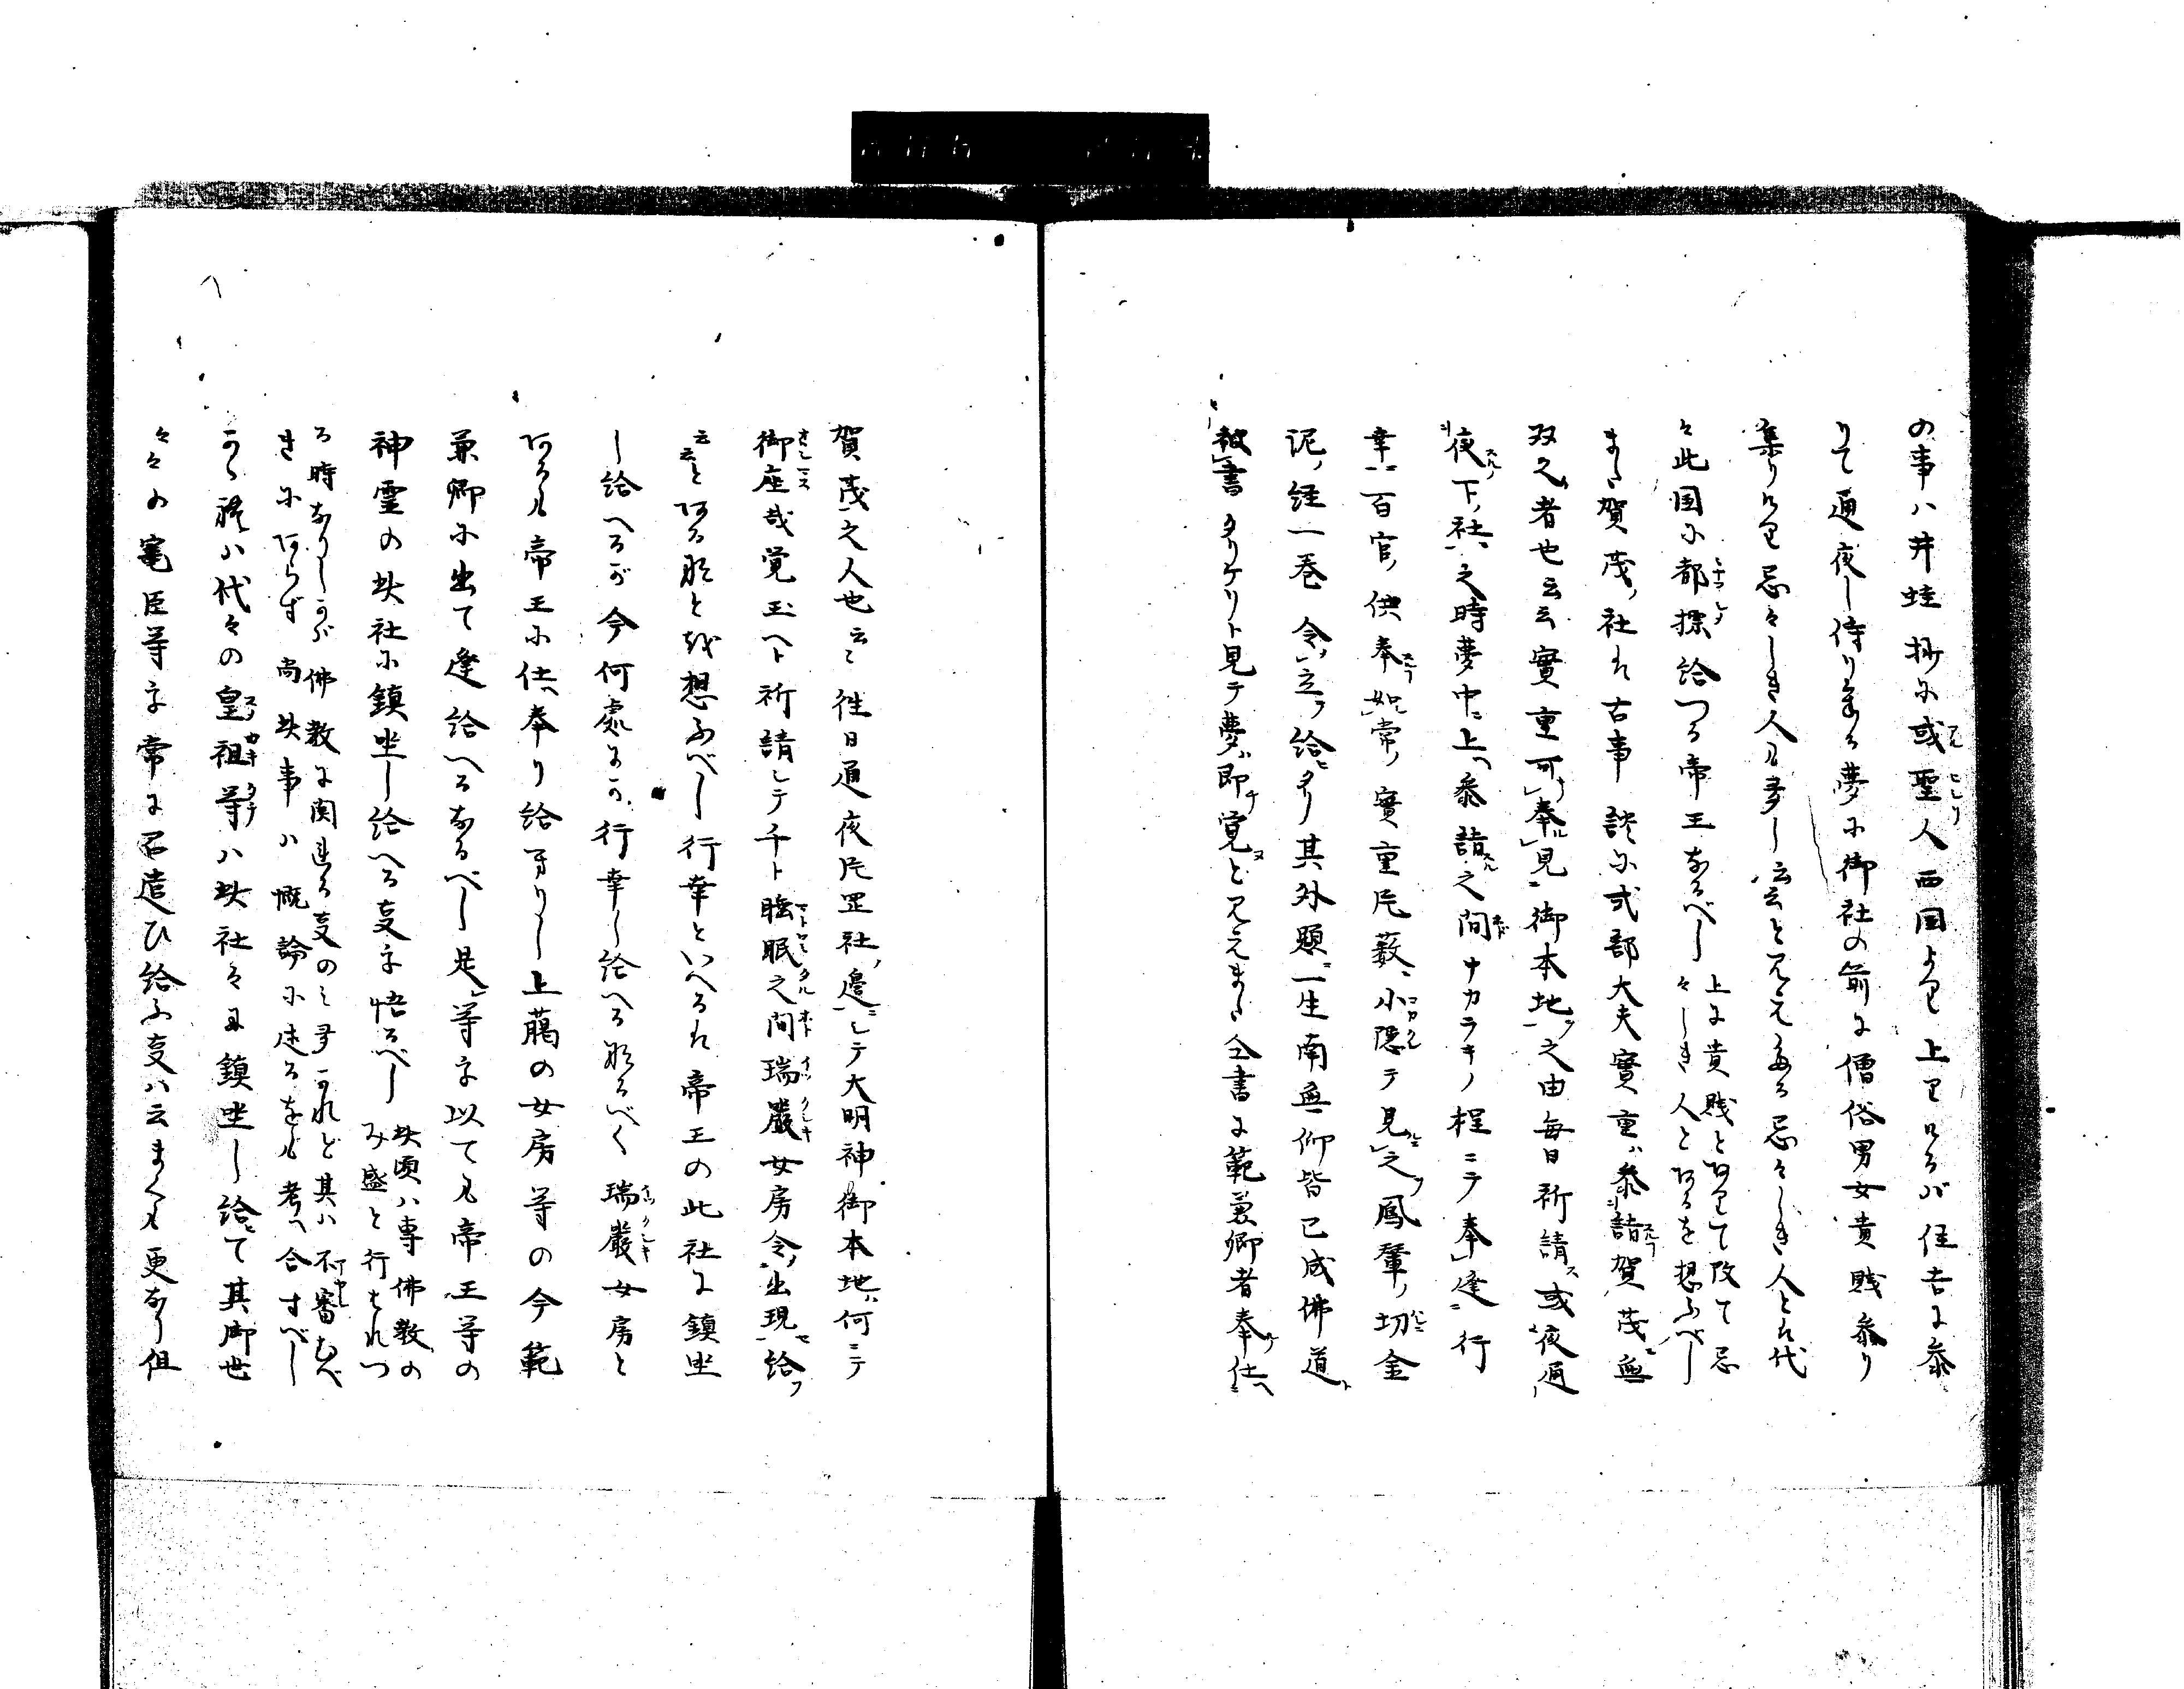 の事ハ井蛙抄に或聖人西国より上りけるが住吉に参
りて通夜し侍りける夢に御社の前に僧俗男女貴賤参り
集りけり忌々しき人も多し云云と見えたる忌々しき人とは代
々此国に都標給つる帝王なるべし
上に貴賤とありて改て忌
々しき人とあるを想ふべし
また賀茂ノ社は古事談に式部大夫實重ハ参詣賀茂無
双之者也云云實重可奉見御本地之由毎日祈請或夜通
夜下ノ社之時夢中ニ上ヘ参詣之間ナカラキノ程ニテ奉逢行
幸百官供奉如常實重片薮ニ小隠テ見之鳳輦ノ切金
泥ノ経一巻令立給タリ其外題ニ一生南無仰皆已成佛道ト
被書タリケリト見テ夢即覚ヌと見えまた仝書に範兼卿者奉仕
賀茂之人也云々往日通夜片罡社ノ邊ニシテ大明神御本地何ニテ
御座哉覚玉ヘト祈請シテ千ト睡眠之間瑞嚴女房令出現給フ
云云とある形とを想ふべし行幸といへるは帝王の此社に鎮坐
し給へるが今何處にか行幸し給へる形るべく瑞嚴女房と
あるも帝王に仕奉り給ヘりし上﨟の女房等の今範
兼卿に出て逢給へるなるべし是等を以ても帝王等の
神霊の此社に鎮坐し給へる事を悟るべし
此頃ハ専佛教の
み盛と行はれつ
る時なりしかば佛教に関れる事のみ多かれど其ハ不審むべ
きにあらず尚此事ハ概論に述るをも考へ合すべし
かく雖ハ代々の皇祖等ハ此社々に鎮坐し給て其御世
々々の竃臣等を常に召造ひ給ふ事ハ云まくも更なり但